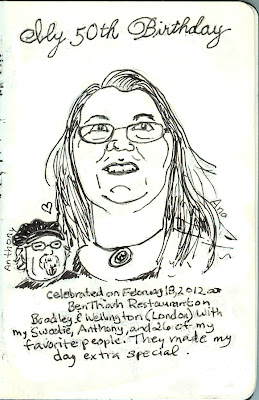 My 50th Birthday
Anthony
Ana
Celebrated on February 18, 2012 at
Ben Thanh Restaurant on
Bradley & Wellington (London) with
my Sweetie, Anthony, and 26 of my
favorite people. They made my
day extra special.